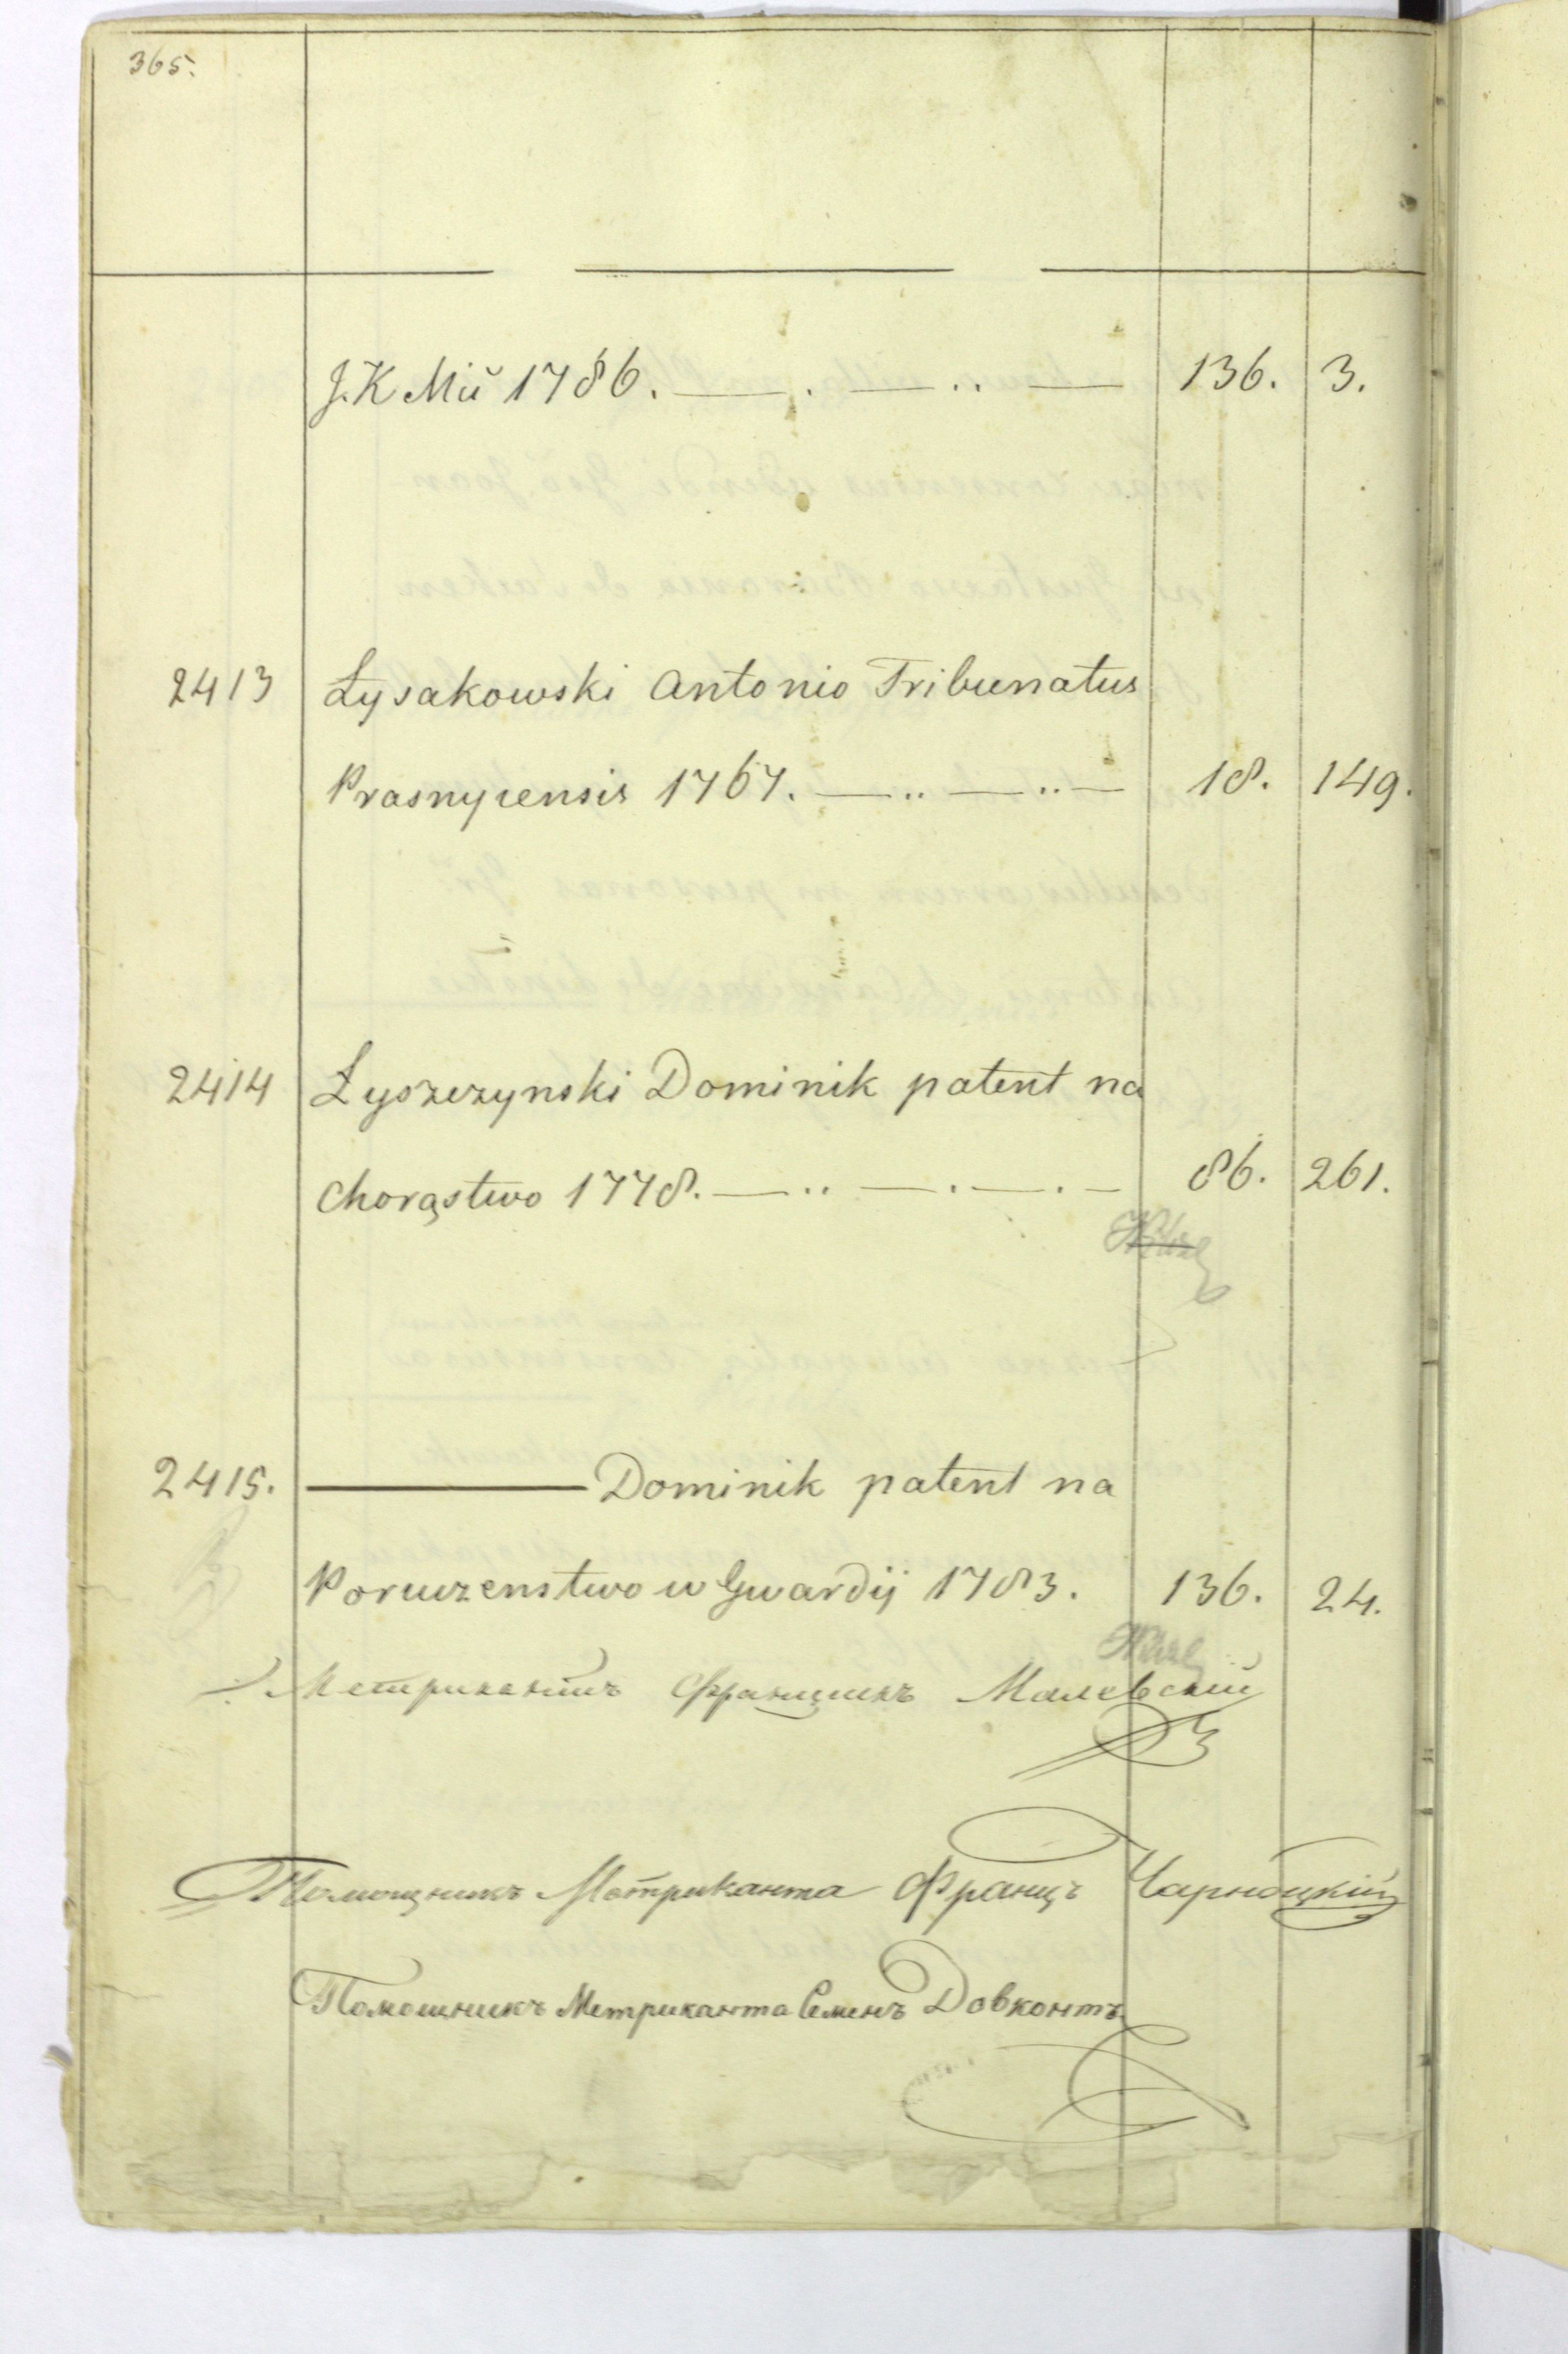 365.
J. K Mci 1786. 136. 3.
2413 Łysakowski Antonio Tribunatus
Prasnycensis 1767. 18. 149.
2414 Łyszczynski Dominik patent na
Chorąstwo 1778. 86. 261.
2415. Dominik patent na
Poruczenstwo w Gwardij 1783. 136. 24.
Метрикантъ Францишекъ Малевскій
Помощникъ Метриканта Францъ Чарноцкій
Помощникъ Метриканта Семенъ Довконтъ